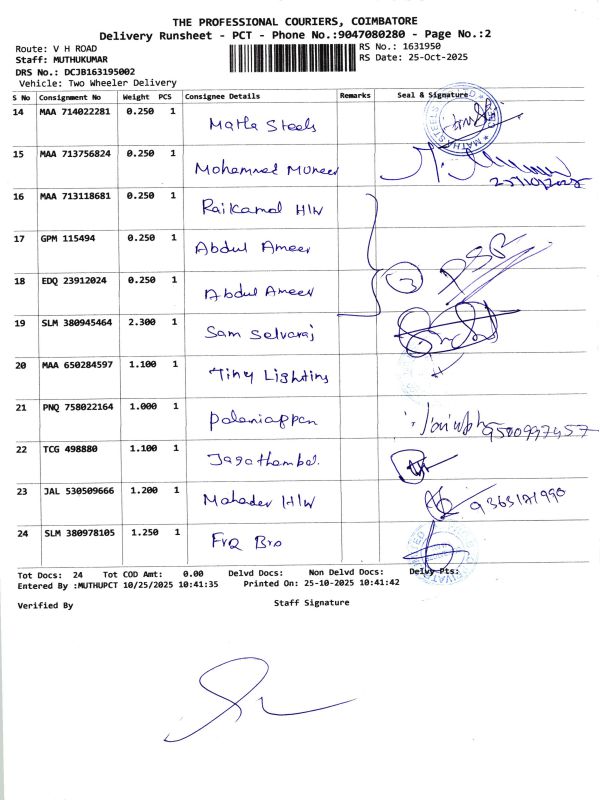 THE PROFESSIONAL COURIERS, COIMBATORE
Delivery Runsheet - PCT - Phone No.:9047080280 - Page No.:2
Route: V H ROAD RS No.: 1631950
Staff: MUTHUKUMAR RS Date: 25-Oct-2025
DRS No.: DCJB163195002
Vehicle: Two Wheeler Delivery
S No Consignment No Weight PCS Consignee Details Remarks Seal & Signature
14 MAA 714022281 0.250 1 Matha Steels
15 MAA 713756824 0.250 1 Mohammed Muneer
16 MAA 713118681 0.250 1 Raikamal H/W
17 GPM 115494 0.250 1 Abdul Ameer
18 EDQ 23912024 0.250 1 Abdul Ameer 3
19 SLM 380945464 2.300 1 Sam Selvaraj
20 MAA 650284597 1.100 1 Tiny Lighting
21 PNQ 758022164 1.000 1 Palaniappan 9500997457
22 TCG 498880 1.100 1 Jagathambal.
23 JAL 530509666 1.200 1 Mahadev H/W 9363171990
24 SLM 380978105 1.250 1 Bro
Tot Docs: 24 Tot COD Amt: 0.00 Delvd Docs: Non Delvd Docs: Delvy Pts:
Entered By :MUTHUPCT 10/25/2025 10:41:35 Printed On: 25-10-2025 10:41:42
Verified By Staff Signature